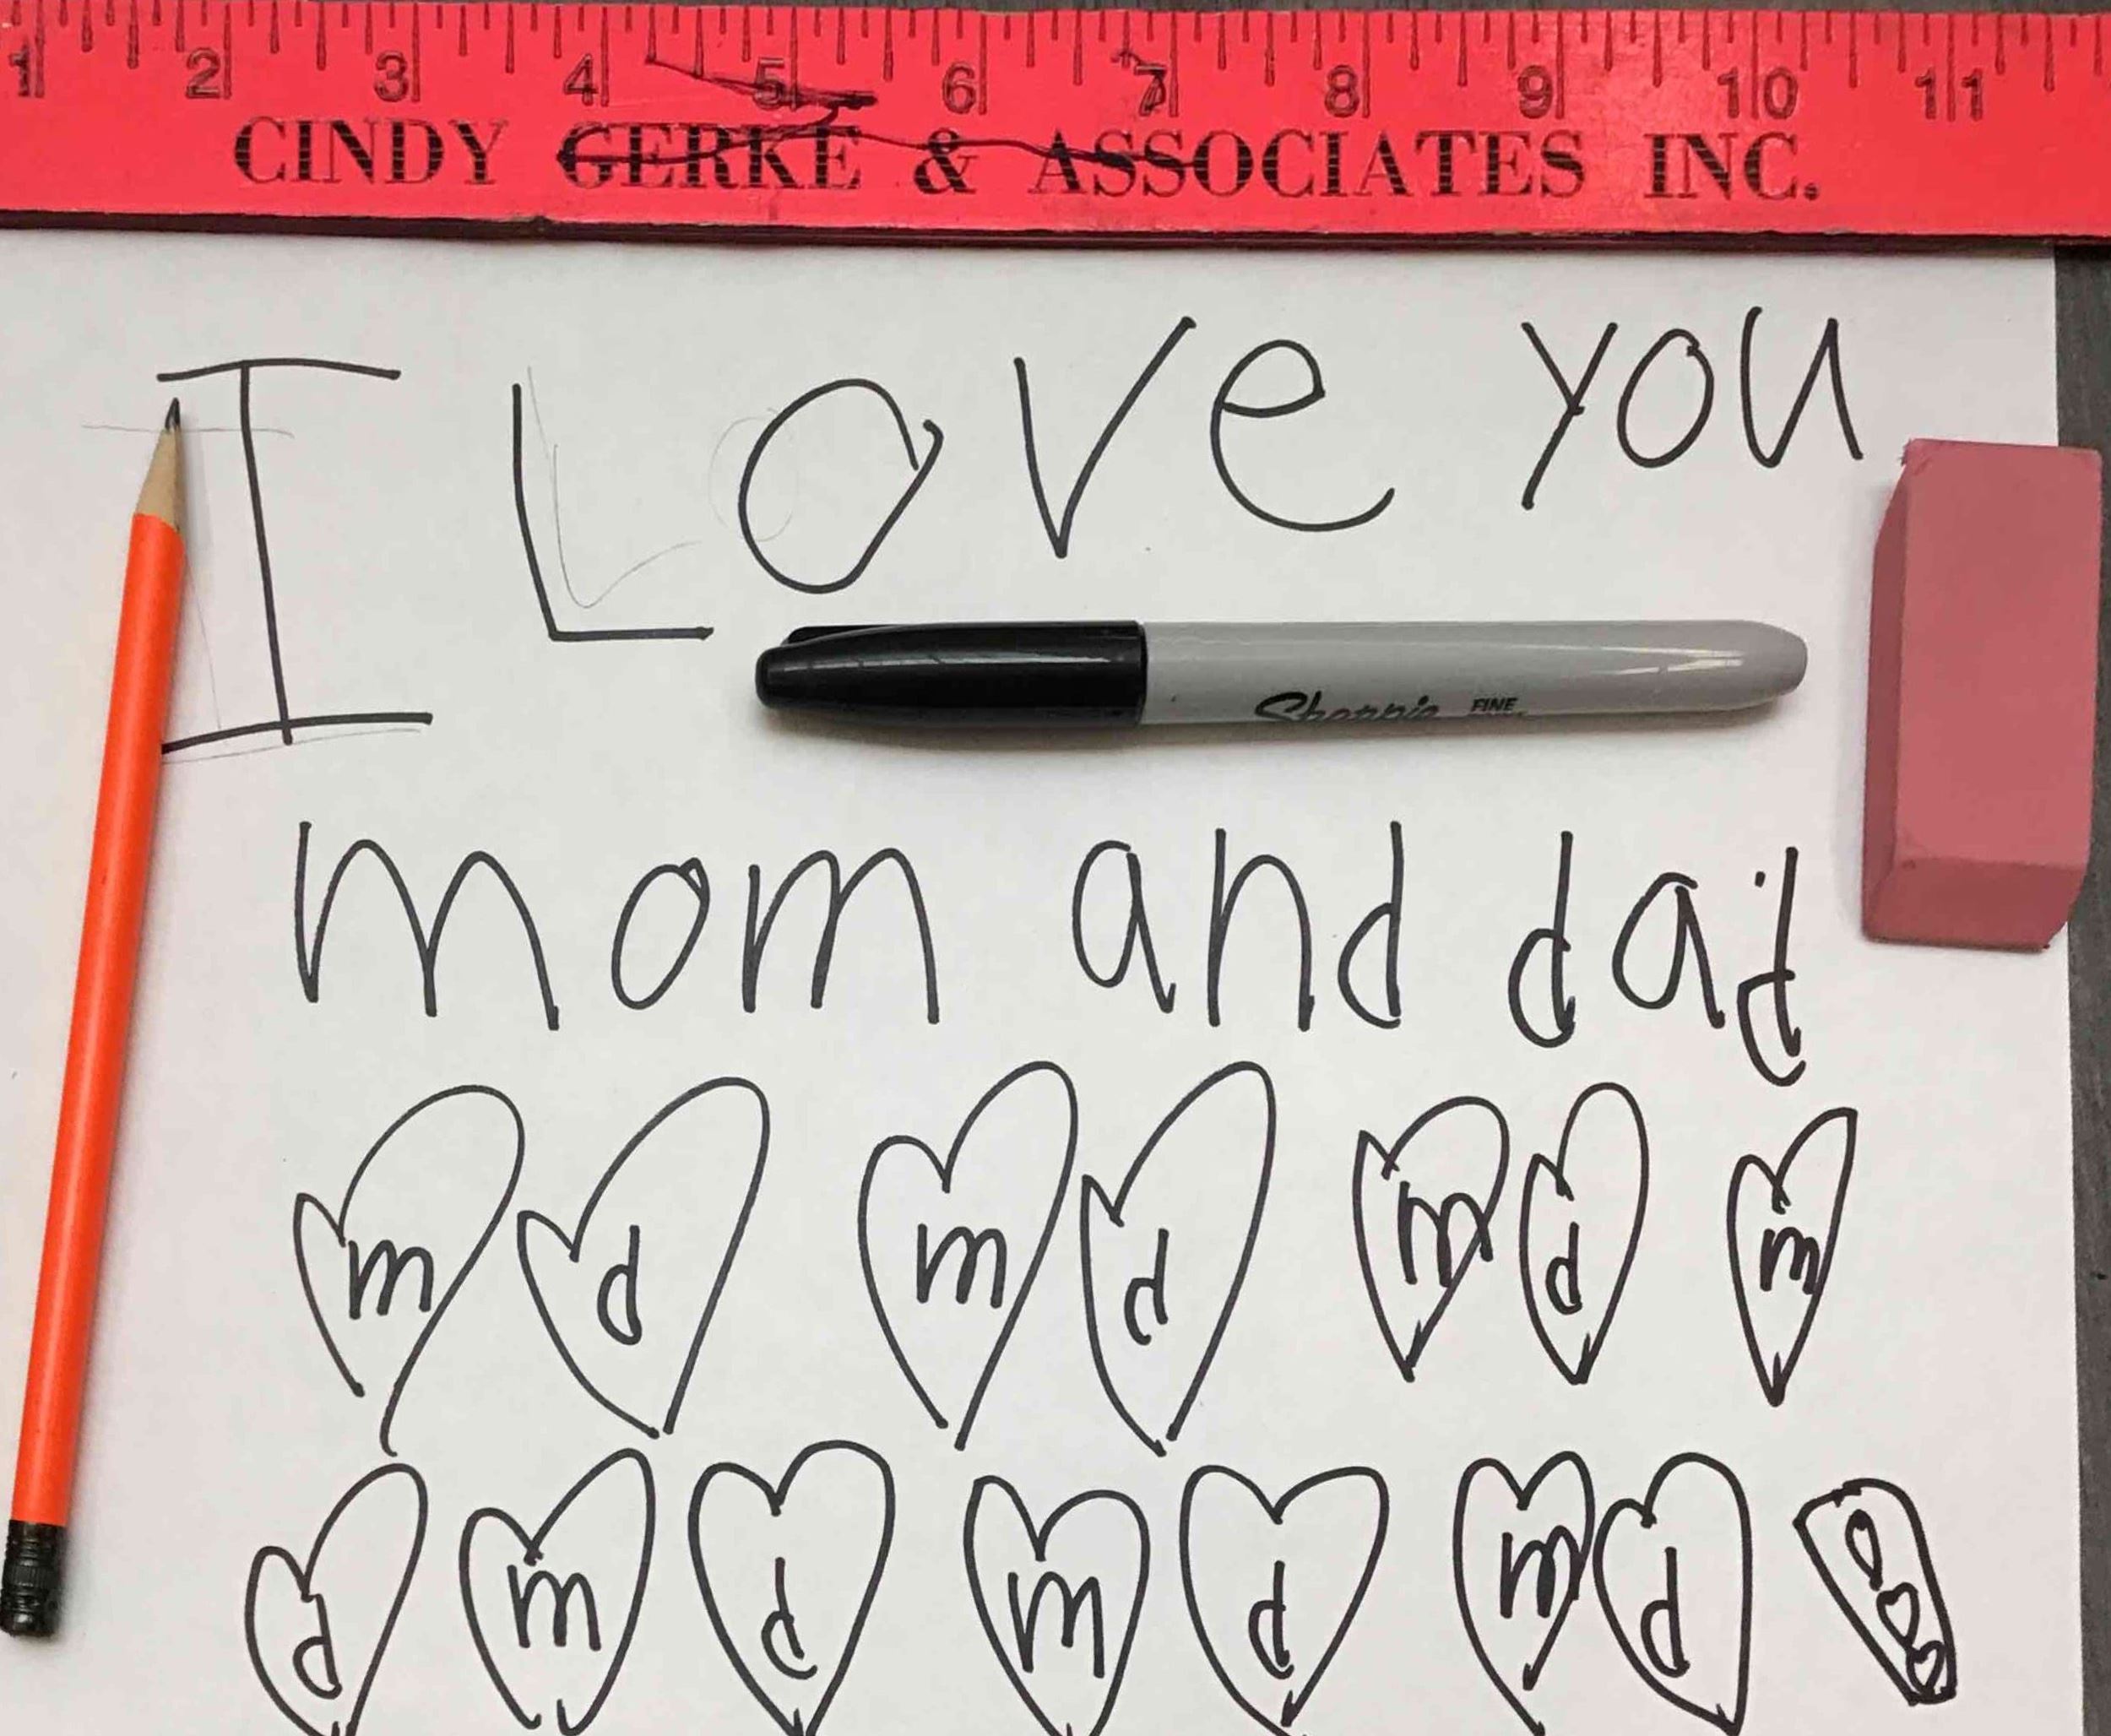 1 2 3 4 5 6 7 8 9 10 11
CINDY GERKE & ASSOCIATES INC.
I Love you
Sharpie FINE
mom and dad
m d m d m d m
d m d m d m d